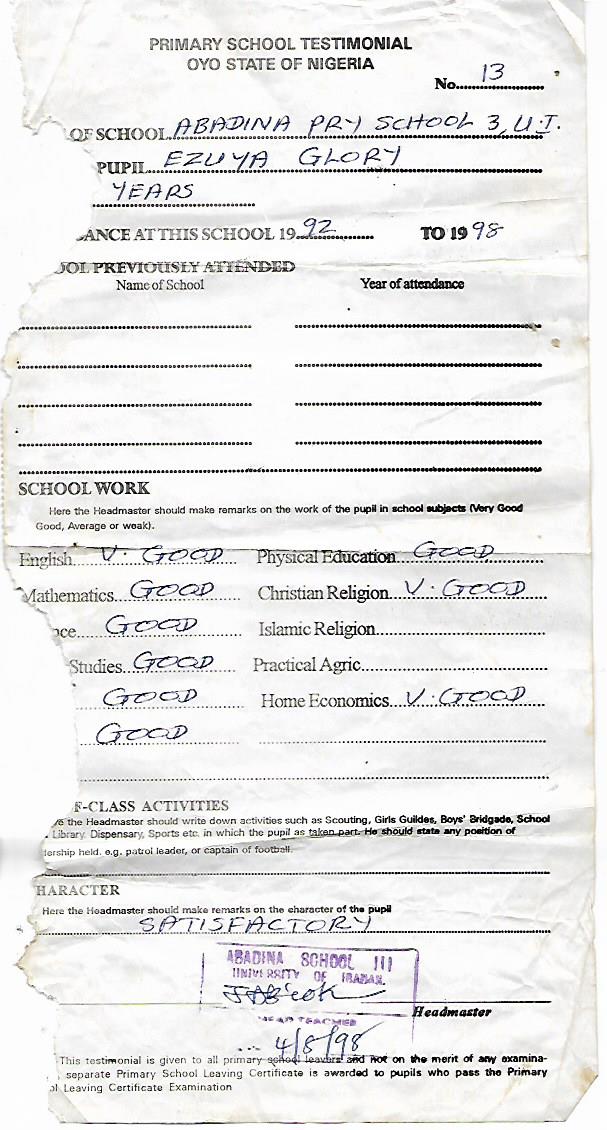 PRIMARY SCHOOL TESTIMONIAL
OYO STATE OF NIGERIA
No. 13
OF SCHOOL ABADINA PRY SCHOOL 3, U.I.
PUPIL EZUYA GLORY
YEARS
ANCE AT THIS SCHOOL 19 92 TO 19 98
OOL PREVIOUSLY ATTENDED
Name of School Year of attendance
SCHOOL WORK
Here the Headmaster should make remarks on the work of the pupil in school subjects (Very Good
Good, Average or weak).
English V. GOOD Physical Education GOOD
Mathematics GOOD Christian Religion V. GOOD
nce GOOD Islamic Religion
Studies GOOD Practical Agric
GOOD Home Economics V. GOOD
GOOD
F-CLASS ACTIVITIES
re the Headmaster should write down activities such as Scouting, Girls Guildes, Boys' Bridgade, School
Library, Dispensary, Sports etc. in which the pupil as taken part. He should state any position of
lership held. e.g. patrol leader, or captain of football.
HARACTER
Here the Headmaster should make remarks on the character of the pupil
SATISFACTORY
ABADINA SCHOOL III
UNIVERSITY OF IBADAN.
Headmaster
HEAD TEACHER
4/8/98
This testimonial is given to all primary school leavers and not on the merit of any examina-
separate Primary School Leaving Certificate is awarded to pupils who pass the Primary
ol Leaving Certificate Examination